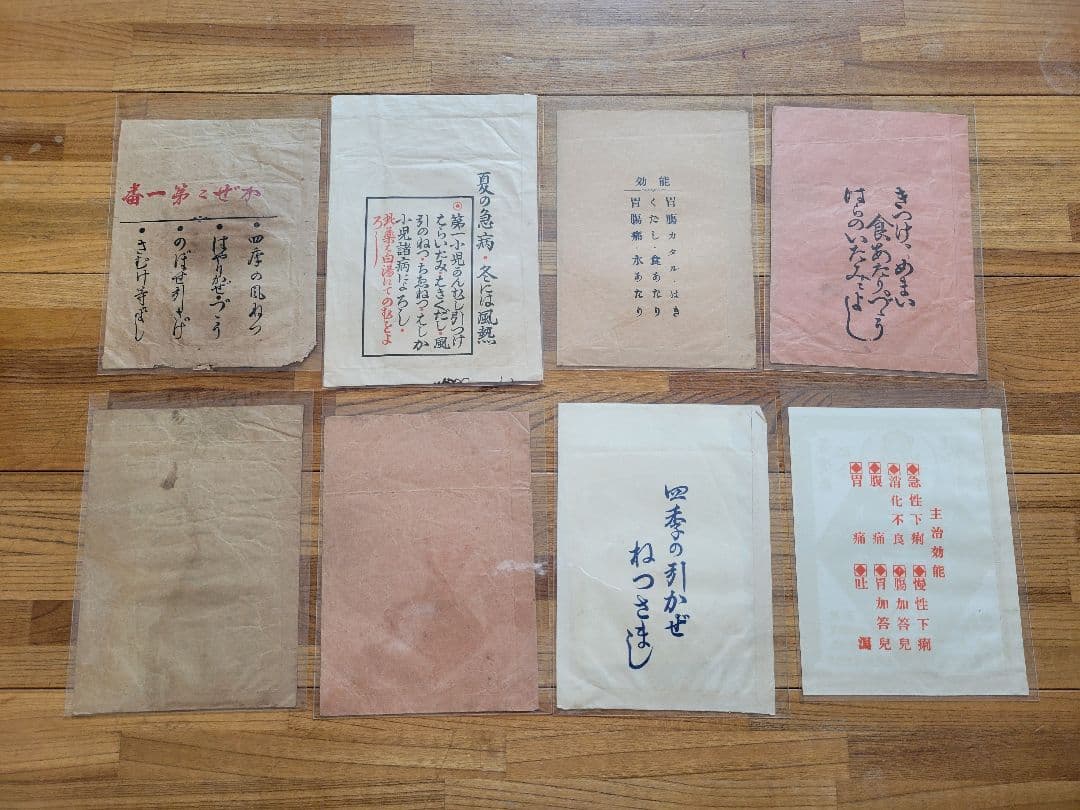 かぜに第一番
•四季の風ねつ
•はやりかぜ•づつう
•のぼせ引さげ
•さむけ等によし
夏の急病•冬には風熱
第一小児きんむし引つけ
はらいたみ•はきくだし•風
引のねつ•ちゑねつ•はしか
小児諸病によろし•
此薬は白湯にてのむをよ
ろし
効能
胃腸カタル・はき
くだし・食あたり
胃腸痛・水あたり
きつけ、めまい
食あたり、づつう
はらのいたみによし
四季の引かぜ
ねつさまし
主治効能
急性下痢 慢性下痢
消化不良 腸加答児
腹痛 胃加答児
胃痛 吐瀉